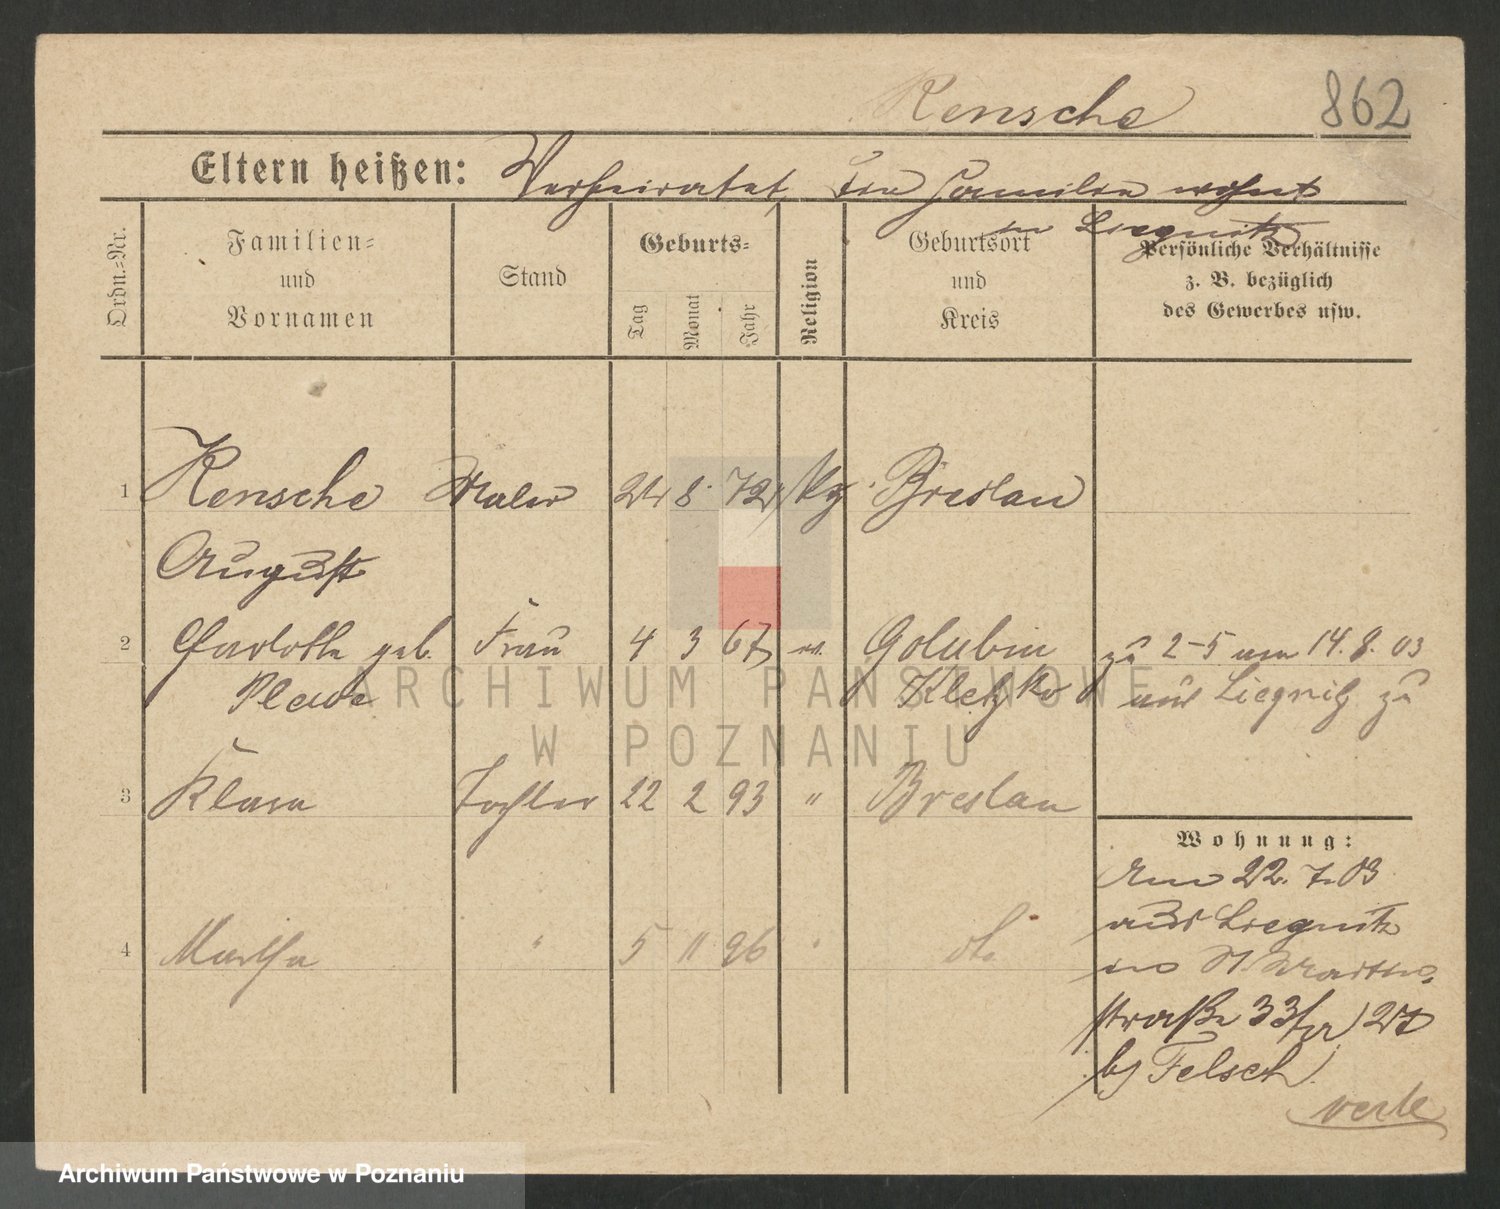 Rensche 862
Eltern heißen: Verheiratet, die Familie wohnt
in Liegnitz
Ordn.-Nr.
Familien-
und
Vornamen
Stand
Geburts-
Tag
Monat
Jahr
Religion
Geburtsort
und
Kreis
Persönliche Verhältnisse
z. B. bezüglich
des Gewerbes usw.
1 Rensche Maler 24 8. 72 Breslau
August
2 Charlotte geb. Frau 4 3 67 ev. Golubin zu 2-5 am 14. 8. 03
Plewe Kletzko aus Liegnitz zu
3 Klara Tochter 22 2 93 " Breslau
4 Martha " 5 11 96 " do
Wohnung:
Am 22. 7. 03
aus Liegnitz
in St Martin-
straße 33
bj Felsch
ARCHIWUM PAŃSTWOWE
W POZNANIU
Archiwum Państwowe w Poznaniu